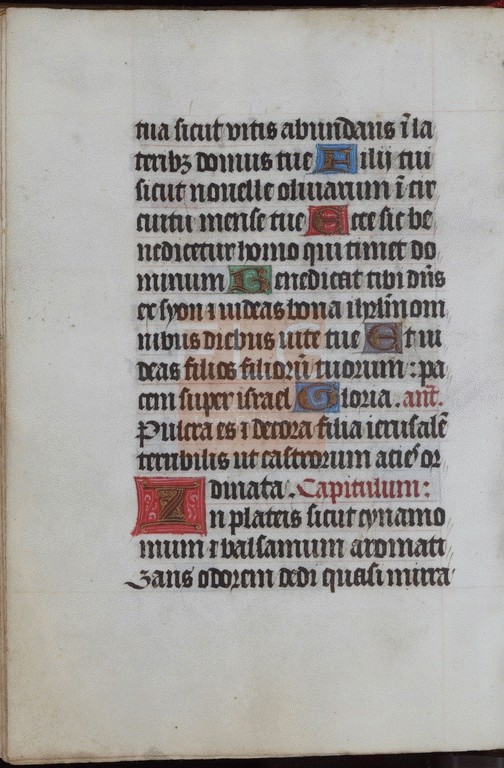 tua sicut vitis abundans ī la
teribꝫ domus tue Filij tui
sicut nouelle oliuarum ī cir
cuitu mense tue Ecce sic be
nedicetur homo qui timet do
minum Benedicat tibi dn̄s
ex syon ⁊ uideas bona ihrlm̄ om
nibus diebus uite tue Et ui
deas filios filiorū tuorum : pa
cem super israel Gloria . ant̄.
Pulcra es ⁊ decora filia ierusalē
terribilis ut castrorum acies or
dinata . Capitulum :
In plateis sicut cynamo
mum ⁊ balsamum aromati
zans odorem dedi quasi mirra